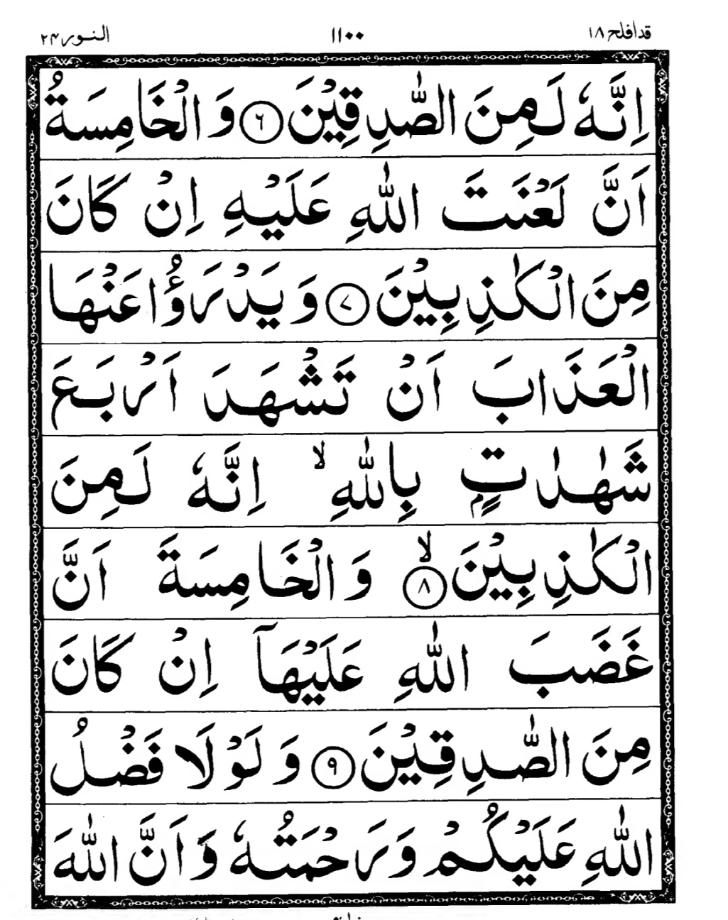 قدافلح ۱۸ ۱۱۰۰ النور ۲۴
اِنَّهٗ لَمِنَ الصّٰدِقِیْنَ ۶ وَ الْخَامِسَةُ
اَنَّ لَعْنَتَ اللّٰهِ عَلَیْهِ اِنْ كَانَ
مِنَ الْكٰذِبِیْنَ ۷ وَ یَدْرَؤُا عَنْهَا
الْعَذَابَ اَنْ تَشْهَدَ اَرْبَعَ
شَهٰدٰتٍۭ بِاللّٰهِ ۙ اِنَّهٗ لَمِنَ
الْكٰذِبِیْنَ ۙ ۸ وَ الْخَامِسَةَ اَنَّ
غَضَبَ اللّٰهِ عَلَیْهَاۤ اِنْ كَانَ
مِنَ الصّٰدِقِیْنَ ۹ وَ لَوْلَا فَضْلُ
اللّٰهِ عَلَیْكُمْ وَ رَحْمَتُهٗ وَ اَنَّ اللّٰهَ